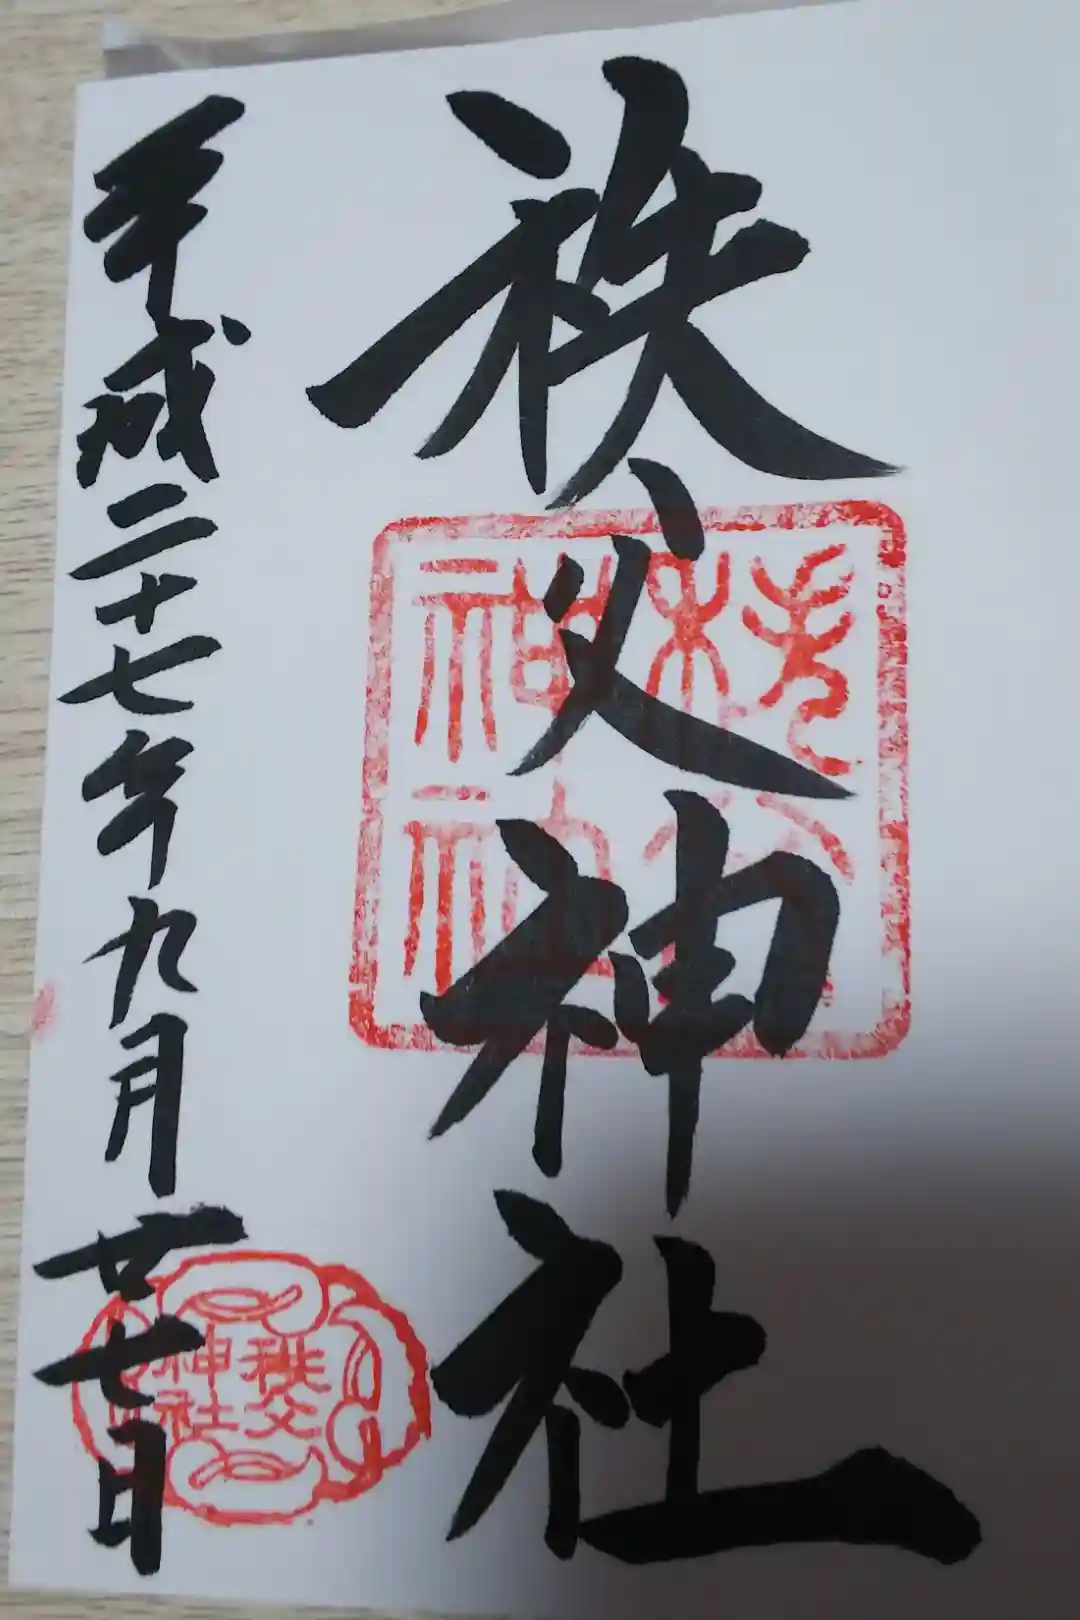 秩父神社
秩父
神社
平成二十七年九月廿七日
秩父
神社